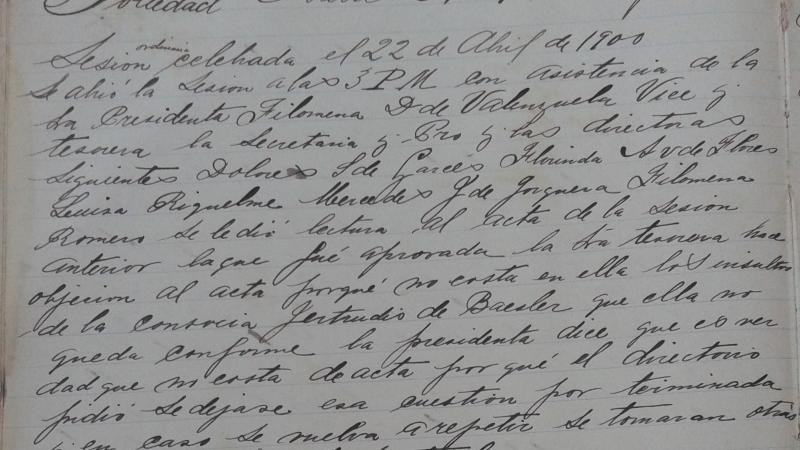 Sociedad
Sesion ordinaria celebrada el 22 de Abril de 1900
Se abrió la Sesion a las 3 P M con asistencia de la
Sra Presidenta Filomena D de Valenzuela Vice y
tesorera la Secretaria y Pro y las directoras
siguientes Dolores S de Garcés Florinda A v de Flores
Luisa Riquelme Mercedes J de Jorquera Filomena
Romero se le dió lectura al acta de la sesion
anterior la que fué aprovada la Sra tesorera hace
objecion al acta porqué no costa en ella los insultos
de la consocia Jertrudis de Baesler que ella no
queda conforme la presidenta dice que es ver
dad que no costa de acta por qué el directorio
pidió se dejase esa cuestion por terminada
y en caso se vuelva a repetir se tomaran otras